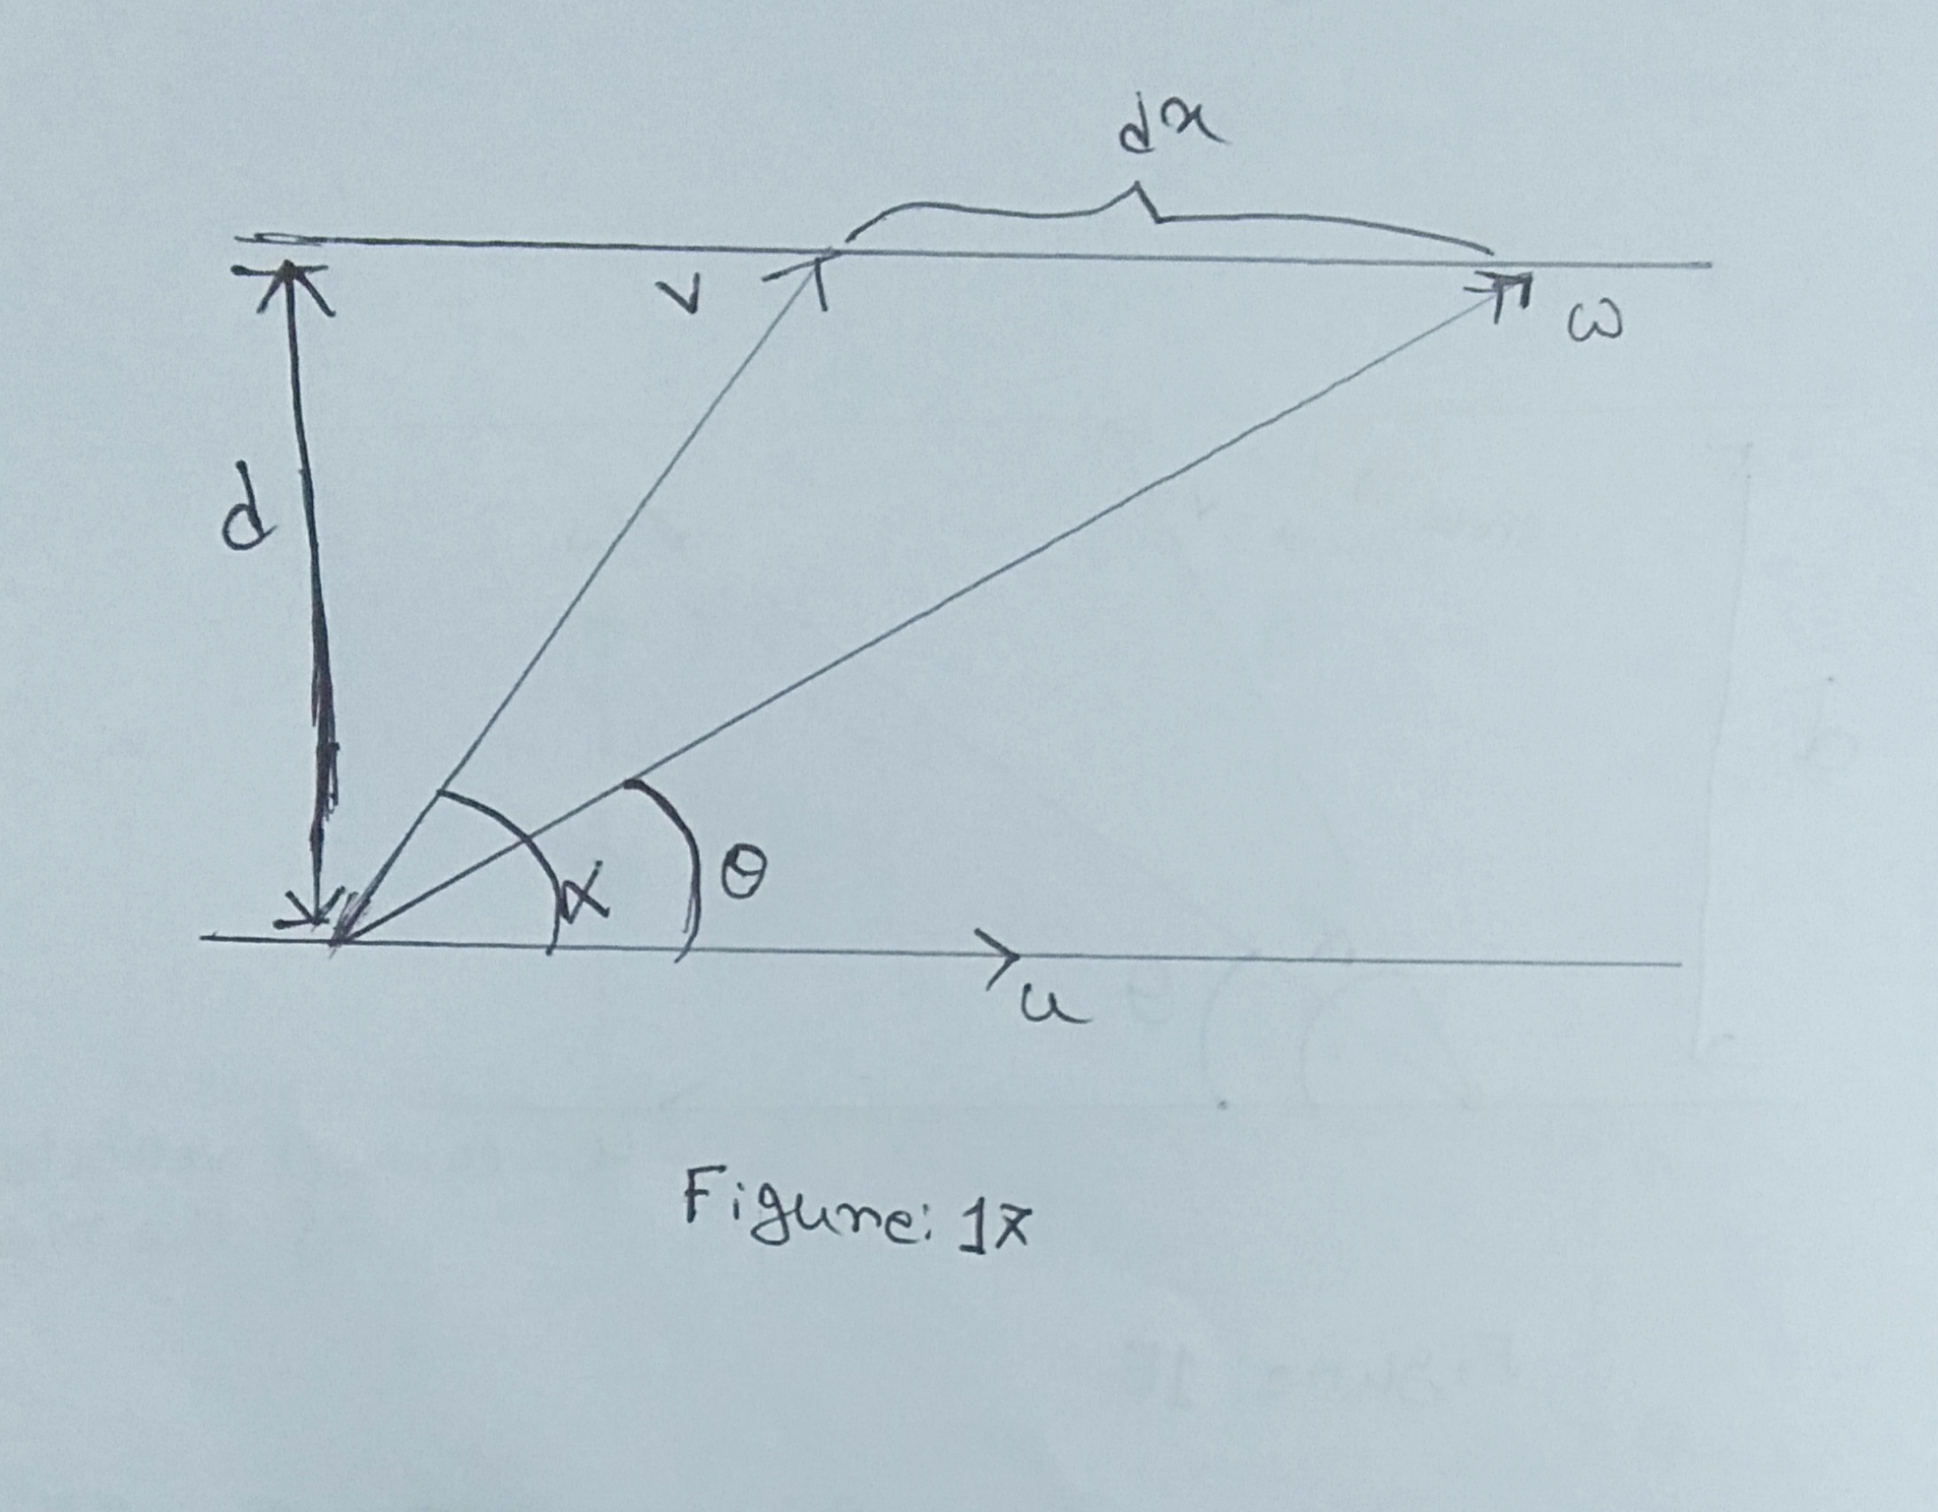 dx
v
ω
d
α
θ
u
Figure: 1x